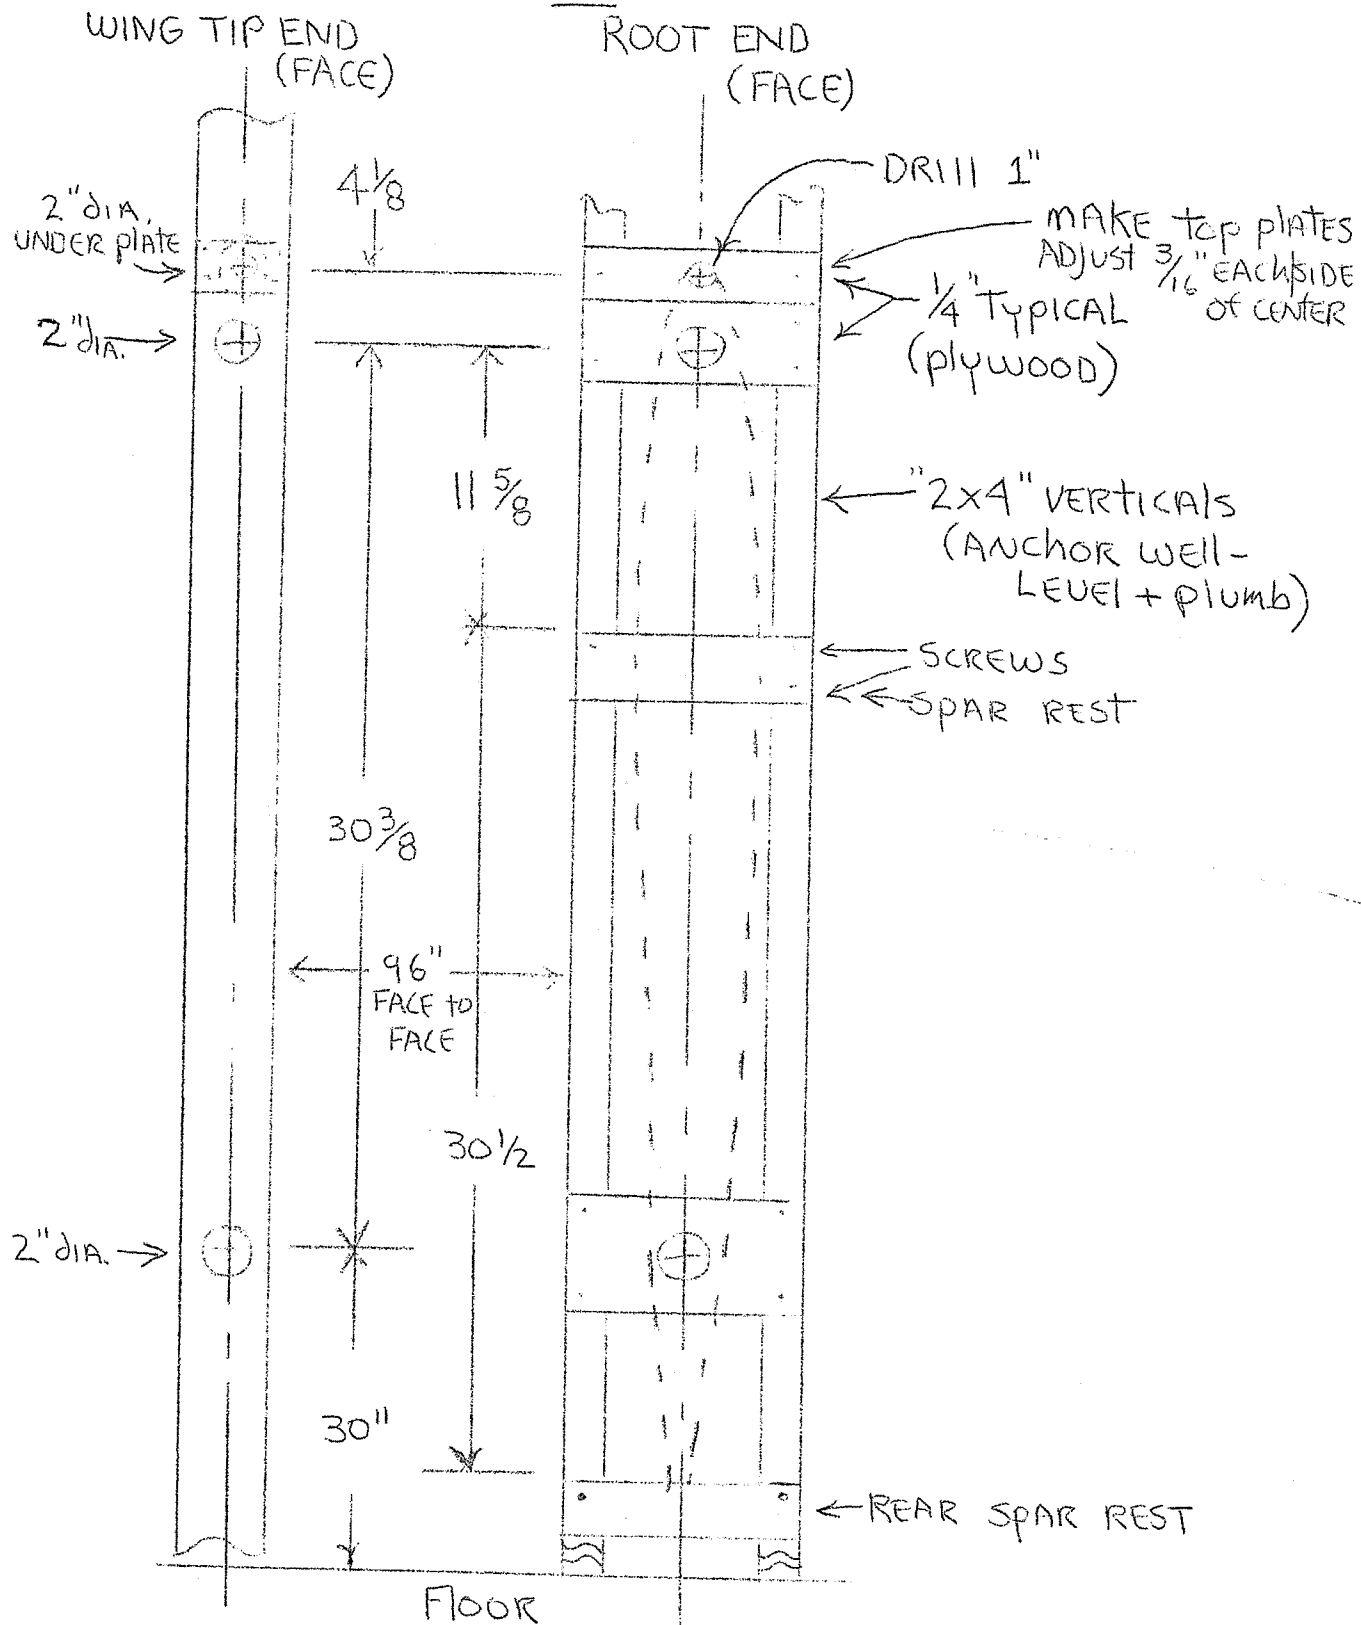 WING TIP END
(FACE)
ROOT END
(FACE)
4 1/8
DRIll 1"
2" dIA.
UNDER plATE
MAKE top plATES
ADJUST 3/16" EACH SIDE
of CENTER
1/4" TYPICAL
(plYWOOD)
2" dIA.
11 5/8
"2x4" VERtICAlS
(ANCHOR WEll-
LEVEl + plumb)
SCREWS
SPAR REST
30 3/8
96"
FACE to
FACE
30 1/2
2" dIA.
30"
REAR SPAR REST
FlOOR